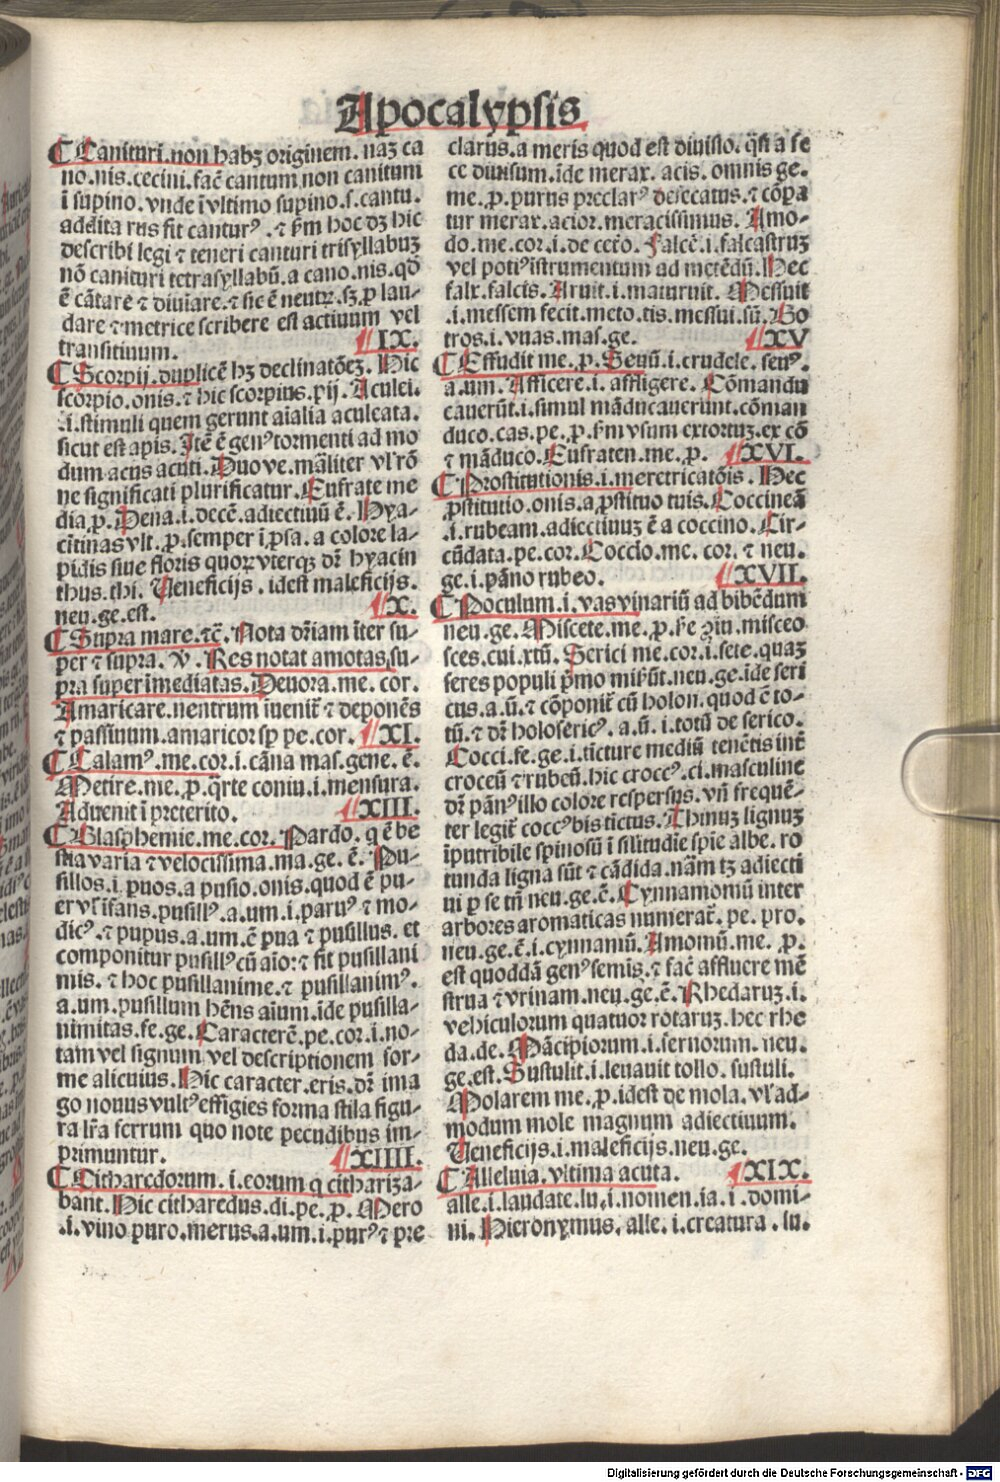 Apocalypsis
¶ Canituri.non habꝫ originem.naꝫ ca
no.nis.cecini.facē cantum non canitum
ī supino.vnde īvltimo supino.s.cantu.
addita rus fit canturꝰ.⁊ p̄m hoc dꝫ hic
describi legi ⁊ teneri canturi trisyllabuꝫ
nō canituri tetrasyllabū.a cano.nis.qd̄
ē cātare ⁊ diuīare.⁊ sic ē neutꝝ.sꝫ.p lau-
dare ⁊ metrice scribere est actiuum vel
transitiuum. ¶ IX.
¶ Scorpij.duplicē hꝫ declinatōeꝫ. Hic
scorpio.onis.⁊ hic scorpius.pij. Aculei.
.i.stimuli quem gerunt aialia aculeata.
sicut est apis. Itē ē genꝰ tormenti ad mo
dum acus acuti. Duo ve. māliter vl' rō
ne significati plurificatur. Eufrate me
dia.p. Pena.i.decē.adiectiuū ē. Hya-
citīnas vlt.p.semper ī psa.a colore la-
pidis siue floris quoꝝ vterqꝫ dr̄ hyacin
thus.thi. Ueneficijs.idest maleficijs.
neu.ge.est. ¶ X.
¶ Supra mare.⁊c̄. Nota dr̄iam īter su-
per ⁊ supra. v̓. Res notat amotas su-
pra super īmediatas. Deuora.me.cor.
Amaricare.neutrum īuenit̄ ⁊ deponēs
⁊ passiuum.amaricor sp pe.cor. ¶ XI.
¶ Calamꝰ.me.cor.i.cāna mas.gene.ē.
Metire.me.p.q̄rte coniu.i.mensura.
Aduenit ī preterito. ¶ XIII.
¶ Blasphemie.me.cor. Pardo.q ē be
stia varia ⁊ velocissima.ma.ge.ē. Pu-
sillos.i.puos.a pusio.onis.quod ē pu-
er vl' īfans.pusillꝰ.a.um.i.paruꝰ ⁊ mo-
dicꝰ.⁊ pupus.a.um.ē pua ⁊ pusillus. et
componitur pusillꝰ cū aīo:⁊ fit pusillani
mis.⁊ hoc pusillanime.⁊ pusillanimꝰ.
a.um.pusillum hēns aium.īde pusilla-
nimitas.fe.ge. Caracterē.pe.cor.i.no-
tam vel signum vel descriptionem for-
me alicuius. Hic caracter.eris.dr̄ ima
go nouus vultꝰ effigies forma stila figu-
ra lr̄a ferrum quo note pecudibus im-
primuntur. ¶ XIIII.
¶ Citharedorum.i.eorum q cithariza-
bant. Hic citharedus.di.pe.p. Mero
.i.vino puro.merus.a.um.i.purꝰ ⁊ pre
clarus.a meris quod est diuisio.q̄si a fe
ce diuisum.īde merax.acis.omnis ge.
me.p.purus preclarꝰ defecatus.⁊ cōpa
tur merax.acior.meracissimus. Amo-
do.me.cor.i.de cero. Falcē.i.falcastruꝫ
vel potiꝰ īstrumentum ad metēdū. Hec
falx.falcis. Aruit.i.maturuit. Messuit
.i.messem fecit.meto.tis.messui.sū. Bo
tros.i.vuas.mas.ge. ¶ XV
¶ Effudit me.p. Seuū.i.crudele.seuꝰ.
a.um. Afficere.i.affligere. Cōmandu
cauerūt.i.simul māducauerunt.cōman
duco.cas.pe.p.fm vsum extortuꝫ.ex cō
⁊ māduco. Eufraten.me.p. ¶ XVI.
¶ Prostitutionis.i.meretricatōis. Hec
ꝓstitutio.onis.a ꝓstituo tuis. Coccineā
.i.rubeam.adiectiuuꝫ ē a coccino. Cir-
cūdata.pe.cor. Coccio.me. cor. ⁊ neu.
ge.i.pāno rubeo. ¶ XVII.
¶ Poculum.i.vas vinariū ad bibēdum
neu.ge. Miscete.me.p. misceo
sces.cui.xtū. Serici me.cor.i.sete.quaꝫ
seres populi pmo misr̄ūt.neu.ge.īde seri
cus.a.ū.⁊ cōponit̄ cū holon.quod ē to-
tū.⁊ dr̄ holosericꝰ.a.ū.i.totū de serico.
Cocci.fe.ge.i.tīcture mediū tenētis int̄
croceū ⁊ rubeū.hic croccꝰ.ci.masculine
dr̄ pānꝰ illo colore respersus.vn̄ frequē-
ter legit̄ coccꝰ bis tictus. Thinuꝫ lignuꝫ
īputribile spinosū ī silitudīe spīe albe.ro
tunda ligna sūt ⁊ cādida.nām tꝫ adiecti
ui p se tn̄ neu.ge.ē. Cynnamomū inter
arbores aromaticas numerat̄.pe.pro.
neu.ge.ē.i.cynnamū. Amomū.me. p.
est quoddā genꝰ semis.⁊ facē affluere mē
strua ⁊ vrinam.neu.ge.ē. Rhedaruꝫ.i.
vehiculorum quatuor rotaruꝫ.hec rhe
da.de. Mācipiorum.i.seruorum. neu.
ge.est. Sustulit.i.leuauit tollo. sustuli.
Molarem me.p.idest de mola.vl' ad-
modum mole magnum adiectiuum.
Ueneficijs.i.maleficijs.neu.ge.
¶ Alleluia.vltima acuta. ¶ XIX.
alle.i.laudate.lu.i.nomen.ia.i.domi-
ni. Hieronymus. alle.i.creatura.lu.
Digitalisierung gefördert durch die Deutsche Forschungsgemeinschaft - DFG